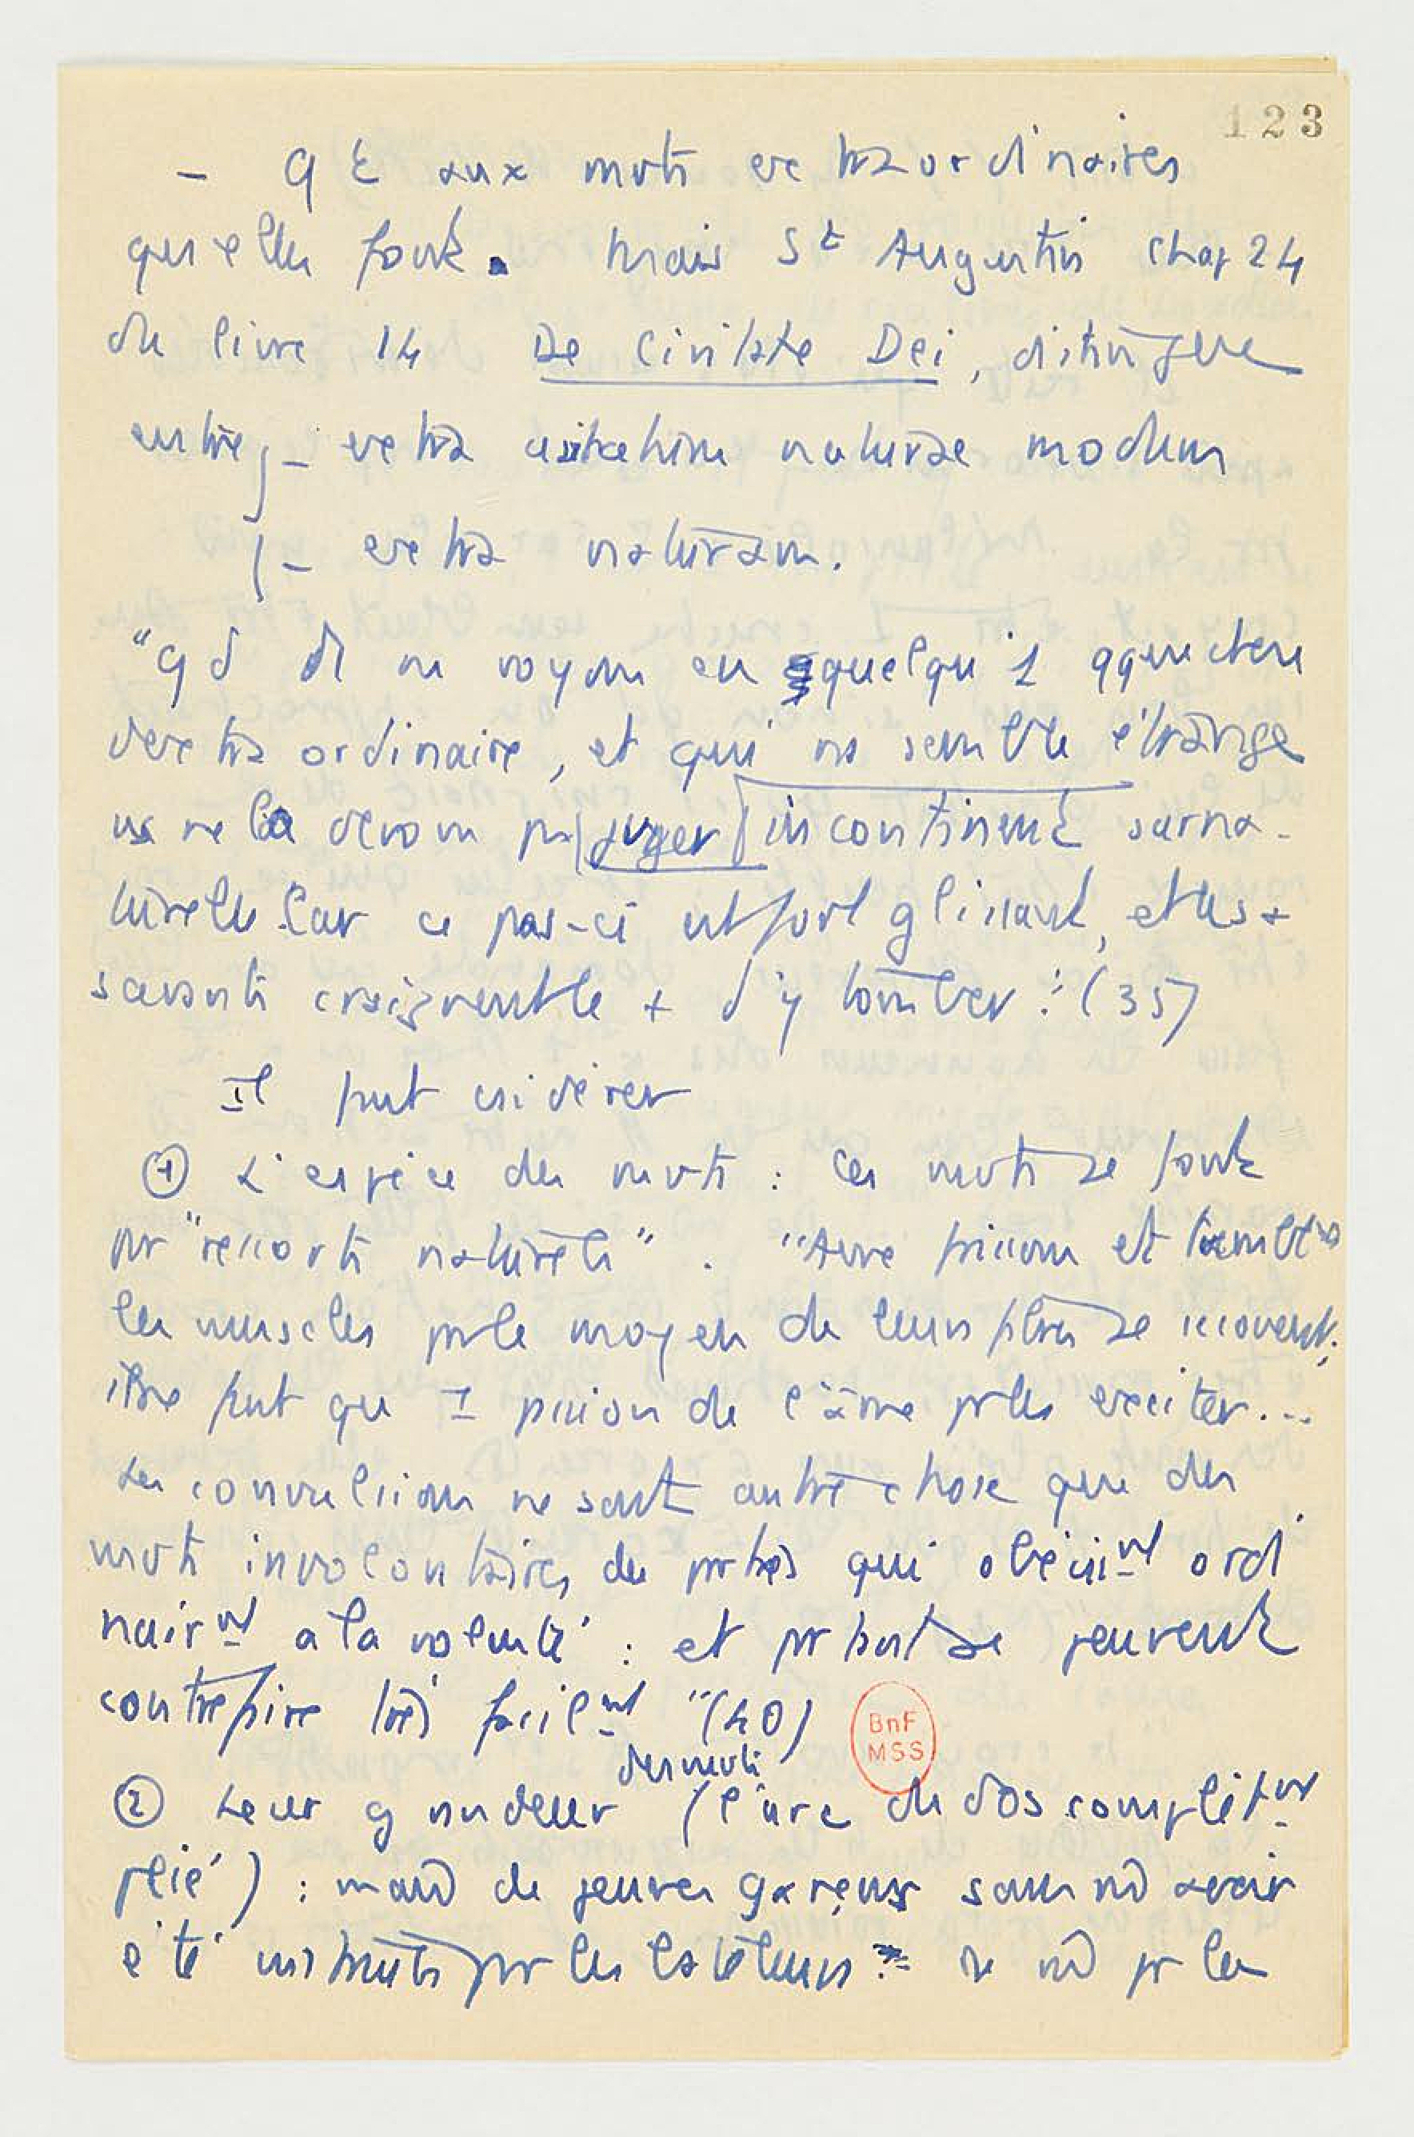 123
– qt aux mvts extraordinaires
qu'elles font. Mais St Augustin chap 24
du livre 14 De Civitate Dei, distingue
entre – extra usitatum naturae modum
– extra naturam.
"qd ns ne voyons en quelqu'1 qque chose
d'extraordinaire, et qui ns semble étrange
ns ne la devons pas juger incontinent surna-
turelle. Car ce pas-ci est fort glissant, et les +
savants craignent le + d'y tomber." (35)
Il faut csidérer
① L'espèce des mvts : Ces mvts se font
par "ressorts naturels". "Avec frissons et tremblts
les muscles par le moyen de leurs fibres se secouent;
il ne faut que 1 passion de l'âme pr les exciter...
Les convulsions ne sont autre chose que des
mvts involontaires des parties qui obéissent ordi
nairmt à la volonté : et partant se peuvent
contrefaire très facilmt "(40)
des mvts
② Leur grandeur (l'arc de dos complètmt
plié) : mais de jeunes garçons sans avoir
été instruits par les bateleurs ne par les
BnF
MSS